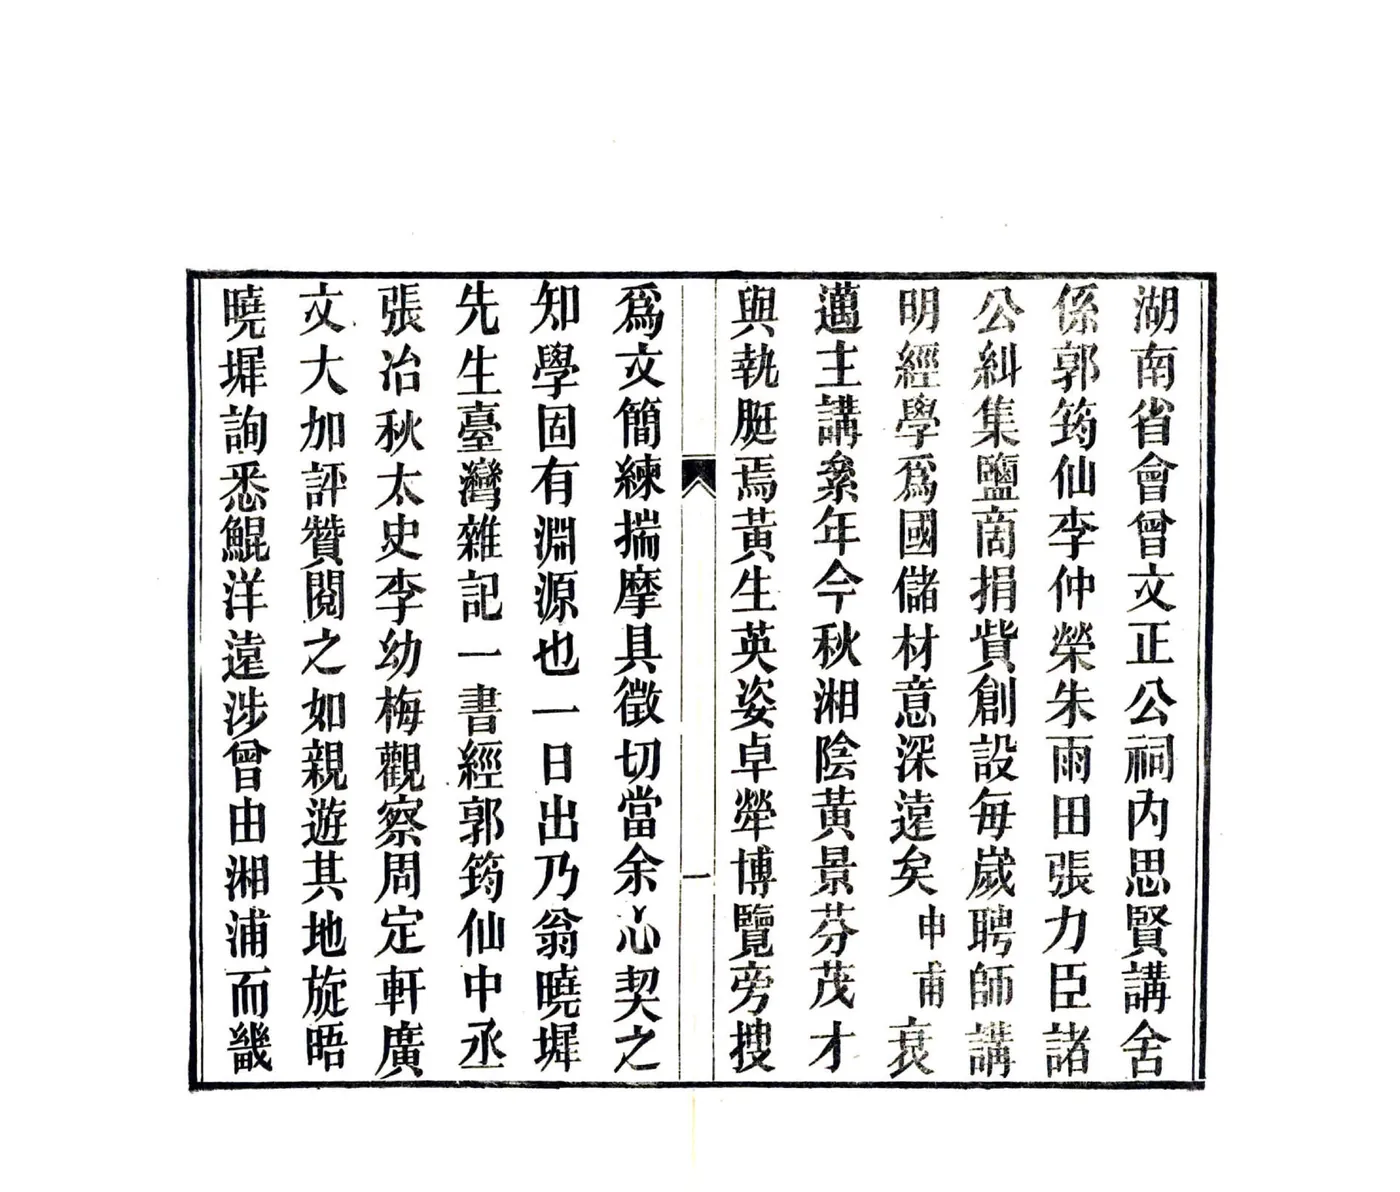 湖南省會曾文正公祠內思賢講舍
係郭筠仙李仲榮朱雨田張力臣諸
公糾集鹽商捐貲創設每歲聘師講
明經學爲國儲材意深遠矣申甫衰
邁主講絫年今秋湘陰黃景芬茂才
與執艇焉黃生英姿卓犖博覽旁搜
一
爲文簡練揣摩具徵切當余心契之
知學固有淵源也一日出乃翁曉墀
先生臺灣雜記一書經郭筠仙中丞
張冶秋太史李幼梅觀察周定軒廣
文大加評贊閱之如親遊其地旋晤
曉墀詢悉鯤洋遠涉曾由湘浦而畿